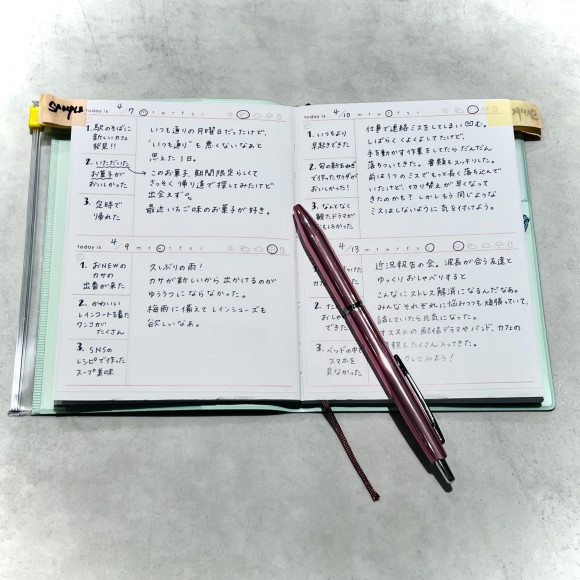 SAMPLE
today is 4/7 m t w t f s s
1. 駅のそばに
新しいカフェ
発見!!
2. いただいた
お菓子が
おいしかった
3. 定時で
帰れた
いつも通りの月曜日だったけど、
"いつも通り"も悪くないなぁと
思えた1日。
このお菓子、期間限定らしくて
さっそく帰り道で探してみたけど
出会えず。
最近いちご味のお菓子が好き。
today is 4/9 m t w t f s s
1. おNEWの
カサの
出番が来た
2. かわいい
レインコートを着た
ワンコが
たくさん
3. SNSの
レシピで作った
スープ美味
久しぶりの雨!
カサが新しいなら出かけるのが
ゆううつにならなかった。
梅雨に備えてレインシューズも
欲しいなぁ。
today is 4/10 m t w t f s s
1. いつもより
早起きできた
2. 旬の新玉ねぎ
で作ったサラダが
おいしかった!
3. なんとなく
観たドラマが
おもしろかった
仕事で連絡ミスをしてしまい凹む。
しばらくくよくよしてたけど、
手を動かす作業をしてたらだんだん
落ちついてきた。書類もスッキリした。
前はうつのミスでもっと長く落ち込んで
いたけど、切り替えが早くなって
きたのかも?しかしもう同じような
ミスはしないように気を付けよう。
4/13 m t w t f s s
1.
2.
できた
3. ベッドの中で
スマホを
見なかった
近況報告の会。波長が合う友達と
ゆっくりおしゃべりすると
こんなにストレス解消になるんだなぁ。
みんなそれぞれに悩みつつも頑張っていて、
話していたら元気になった。
オススメの配信ドラマやバンド、カフェの
たくさん入ってきた。
してみよう!